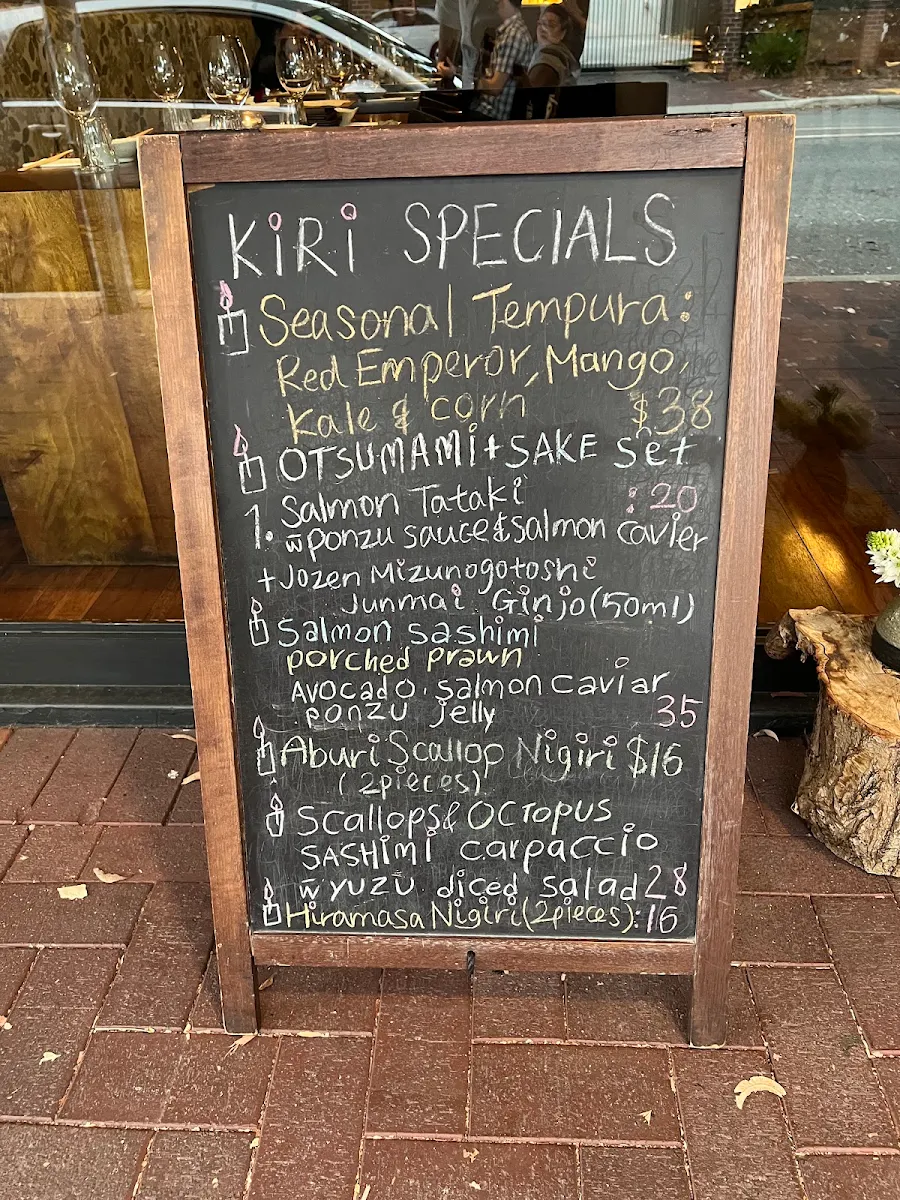 KiRi SPECIALS
Seasonal Tempura:
Red Emperor, Mango,
Kale & corn $38
OTSUMAMi + SAKE set
Salmon Tataki :20
1. w̃ ponzu sauce & salmon cavier
+ Jozen Mizunogotoshi
Junmai Ginjo (50ml)
Salmon sashimi
porched prawn
Avocado. salmon caviar
ponzu jelly 35
Aburi Scallop Nigiri $16
(2pieces)
Scallops & Octopus
SASHiMi carpaccio
w̃ yuzu diced salad 28
Hiramasa Nigiri (2pieces): 16